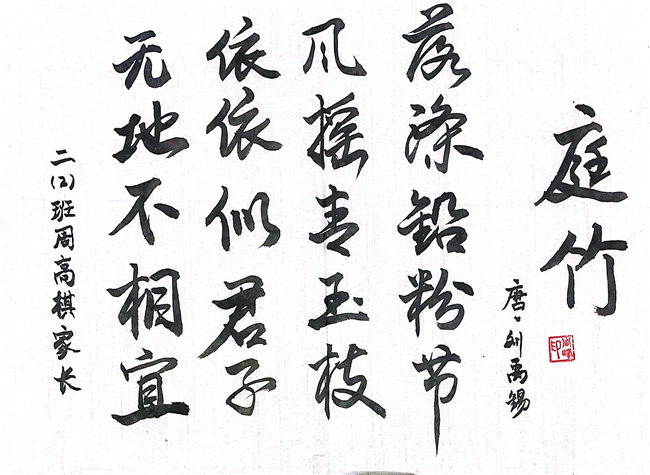 庭竹
唐·刘禹锡
露涤铅粉节
风摇青玉枝
依依似君子
无地不相宜
二(2)班周高棋家长